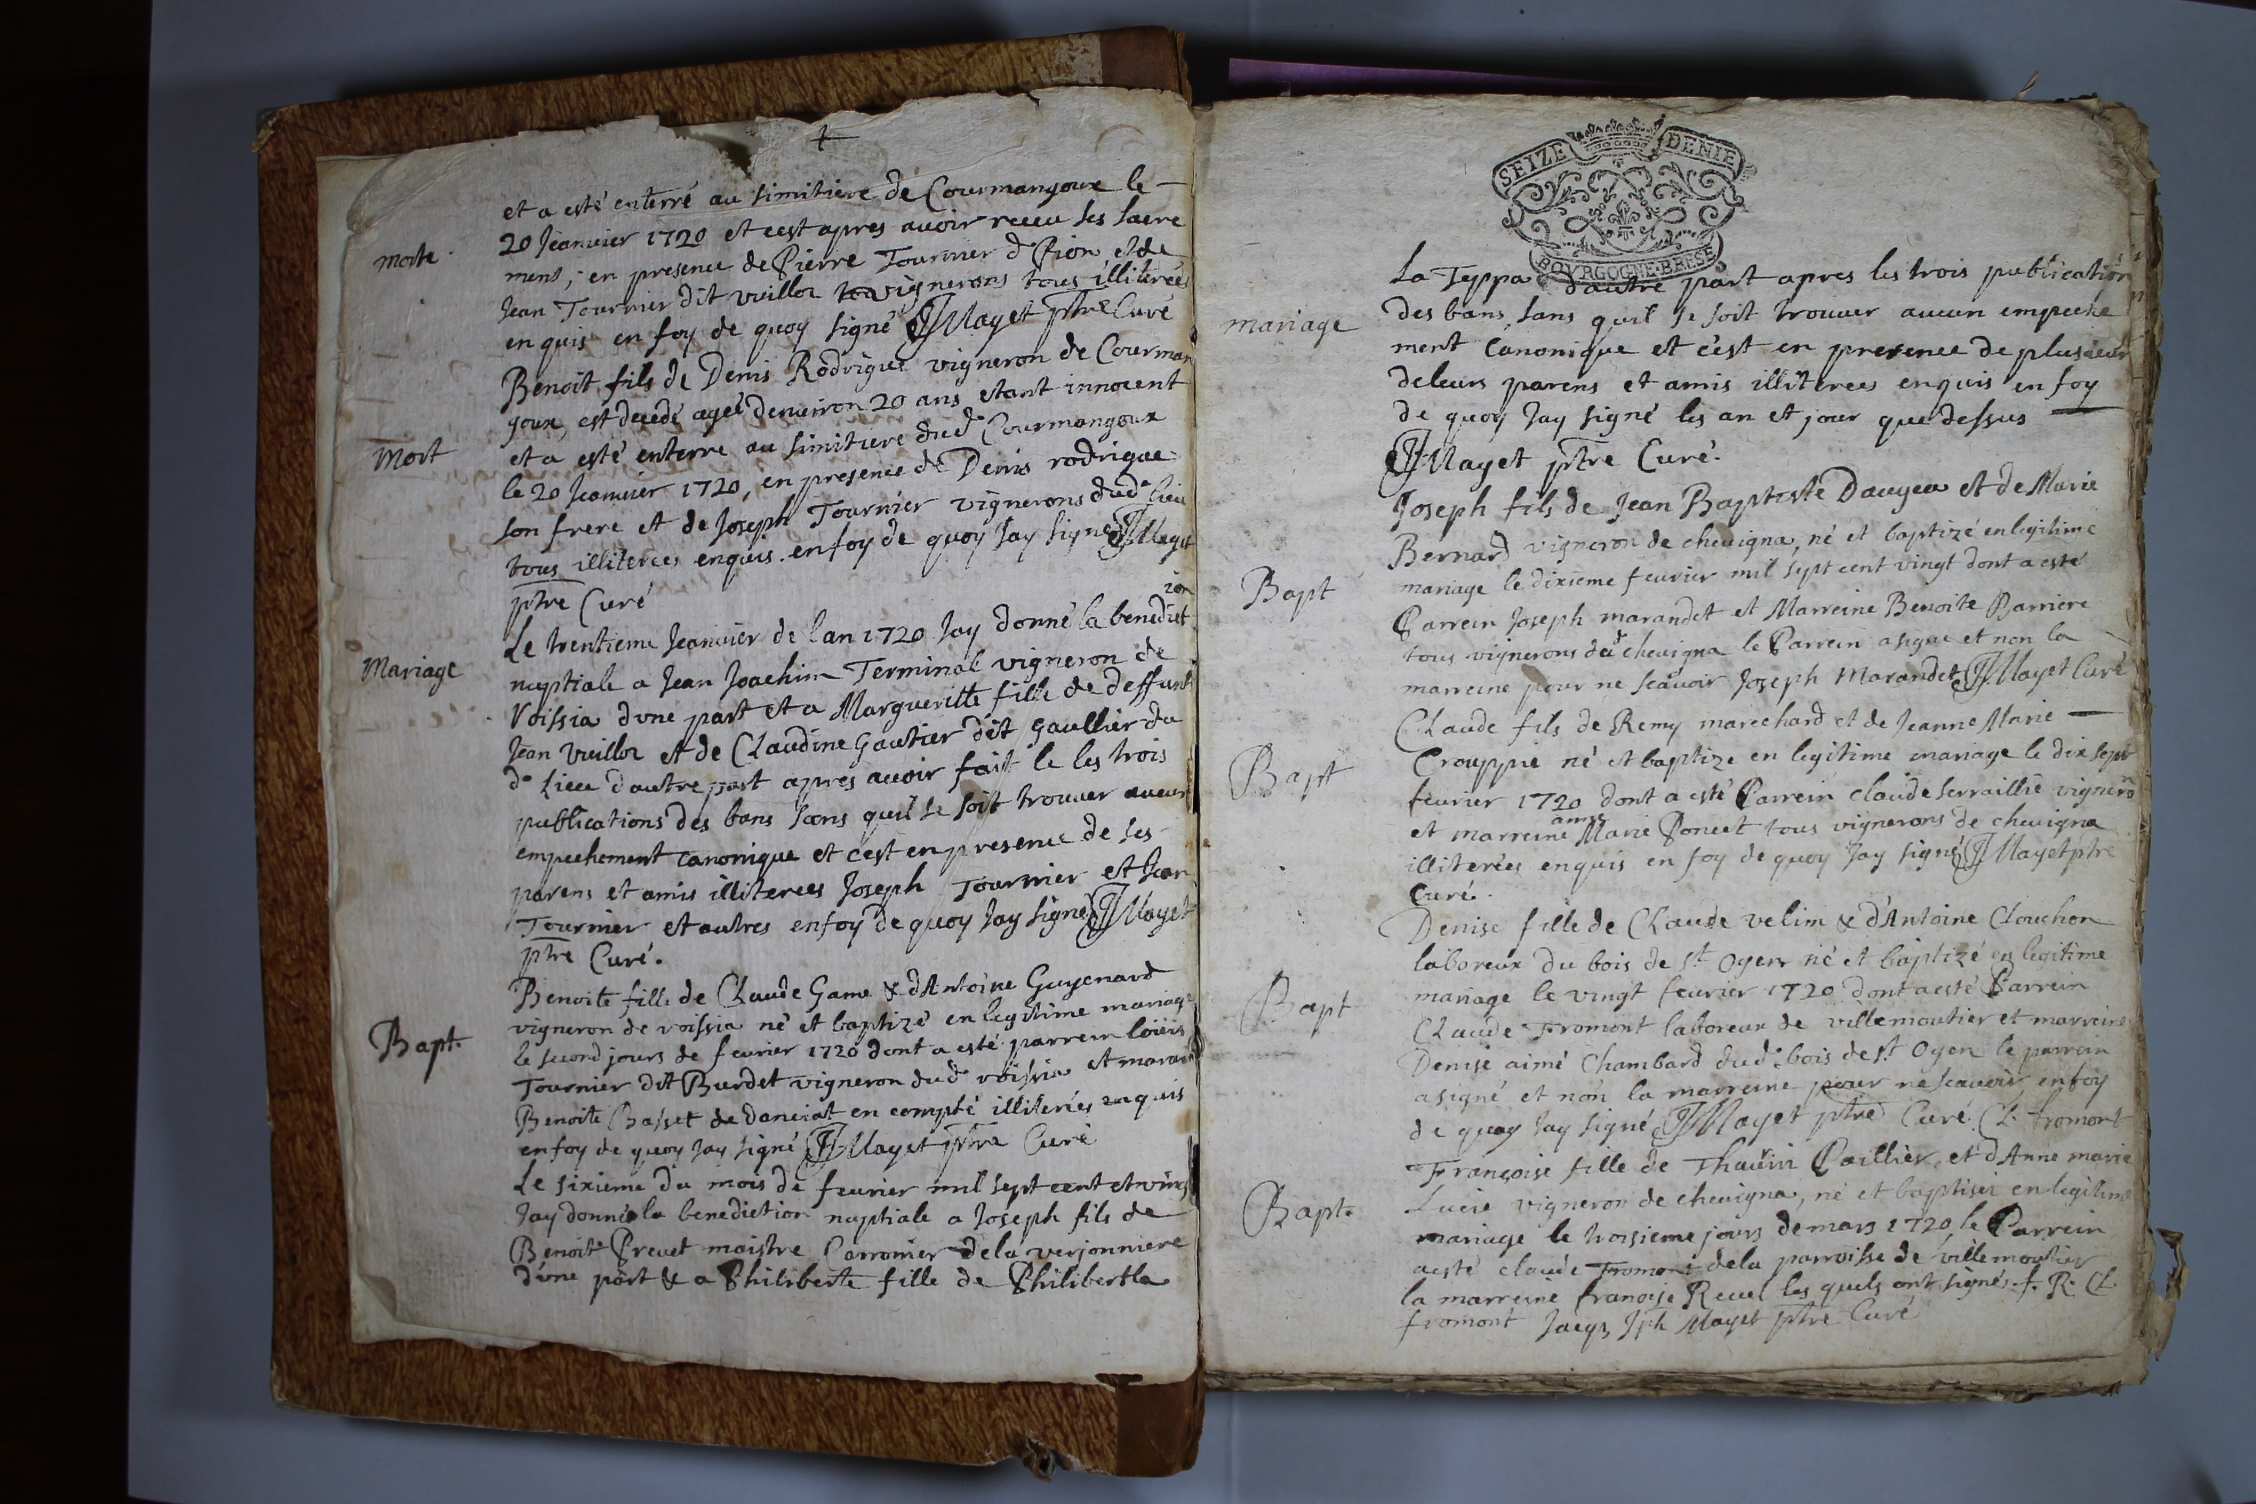 et a esté enterré au simitiere de Courmangoux le
morte
20 Jeanvier 1720 et cest apres avoir receu ses sacre
ment, en presence de Pierre Tournier d Pion et de
Jean Tournier dit vuillot vignerons tous illiterées
enquis en foy de quoy signé JMayet ptre Curé
Benoit fils de Denis Rodrigue vigneron de Courman
goux, est decedé ageé denviron 20 ans etant innocent
Mort
et a esté enterré au simitiere dud. Courmangoux
le 20 Jeanvier 1720, en presence de Denis rodrigue
son frere et de Joseph Tournier vignerons dud. lieu
tous illiterees enquis. en foy de quoy Jay signé JMayet
ptre Curé
Le trentieme Jeanvier de lan 1720 Jay donné la benedict ion
Mariage
nuptiale a Jean Joachim Terminal vigneron de
Voissia dune part et a Margueritte fille de deffunt
Jean Vuillot et de Claudine Gautier dit Gaullier du
d. Lieu dautre part apres avoir fait le les trois
publications des bans sans quil se soit trouver aucun
empechement canonique et cest en presence de ses
parens et amis illiterees Joseph Tournier et Jean
Tournier et autres en foy de quoy Jay signé JMayet
ptre Curé.
Benoite fille de Claude Game & dAntoine Guyenard
Bapt.
vigneron de voissia né et baptizé en legitime mariage
le second jours de fevrier 1720 dont a esté parrein loüis
Tournier dit Burdet vigneron dud. voissia et marein
Benoite Basset de danciat en compté illiterées enquis
en foy de quoy Jay signé JMayet ptre Curé
Le sixieme du mois de fevrier mil sept cent et vingt
Jay donné la benediction nuptiale a Joseph fils de
Benoit Prevet maistre Carronier dela verjonniere
dune part & a Philiberte fille de Philibert la
SEIZE DENIE
BOVRGOGNE·BRESE
La Teppa dautre part apres les trois publication
mariage
des bans, sans quil se soit trouver aucun empeche
ment canonique et c'est en presence de plusieur
deleurs parens et amis illiterees enquis en foy
de quoy Jay signé les an et jour que dessus
JMayet ptre Curé.
Joseph fils de Jean Baptiste Daugea et de Marie
Bernard vigneron de chevigna, né et baptizé en legitime
Bapt
mariage le dixieme fevrier mil sept cent vingt dont a esté
Parrein Joseph marandet et Marreine Benoite Barriere
tous vignerons dud chevigna le Parrein a signé et non la
marreine pour ne scavoir Joseph Marandet JMayet Curé
Claude fils de Remy marechard et de Jeanne Marie
Bapt
Crouppie né et baptize en legitime mariage le dix sept
fevrier 1720 dont a esté Parrein claude serraillié vigneron
et marreine anne Marie Poncet tous vignerons de chevigna
illiterées enquis en foy de quoy Jay signé JMayet ptre
Curé.
Denise fille de Claude velim & d'Antoine Clouchon
laboreur du bois de st. Oyen né et baptizé en legitime
Bapt
mariage le vingt fevrier 1720 dont a esté Parrein
Claude Fromont laboreur de villemoutier et marreine
Denise aimé Chambard dud. bois de st. Oyen le parrein
a signé et non la marreine pour ne scavoir en foy
de quoy Jay signé JMayet ptre Curé Cl. fromont
Françoise fille de Thaurin Paillier et dAnne marie
Bapt.
Lucie vigneron de chevigna, né et baptiser en legitime
mariage le troisieme jours de mars 1720, le Parrein
a esté claude Fromont dela parroisse de villemoutier
la marreine françoise Revel les quels ont signés. f. R. Cl.
fromont Jacqs Jph Mayet ptre Curé